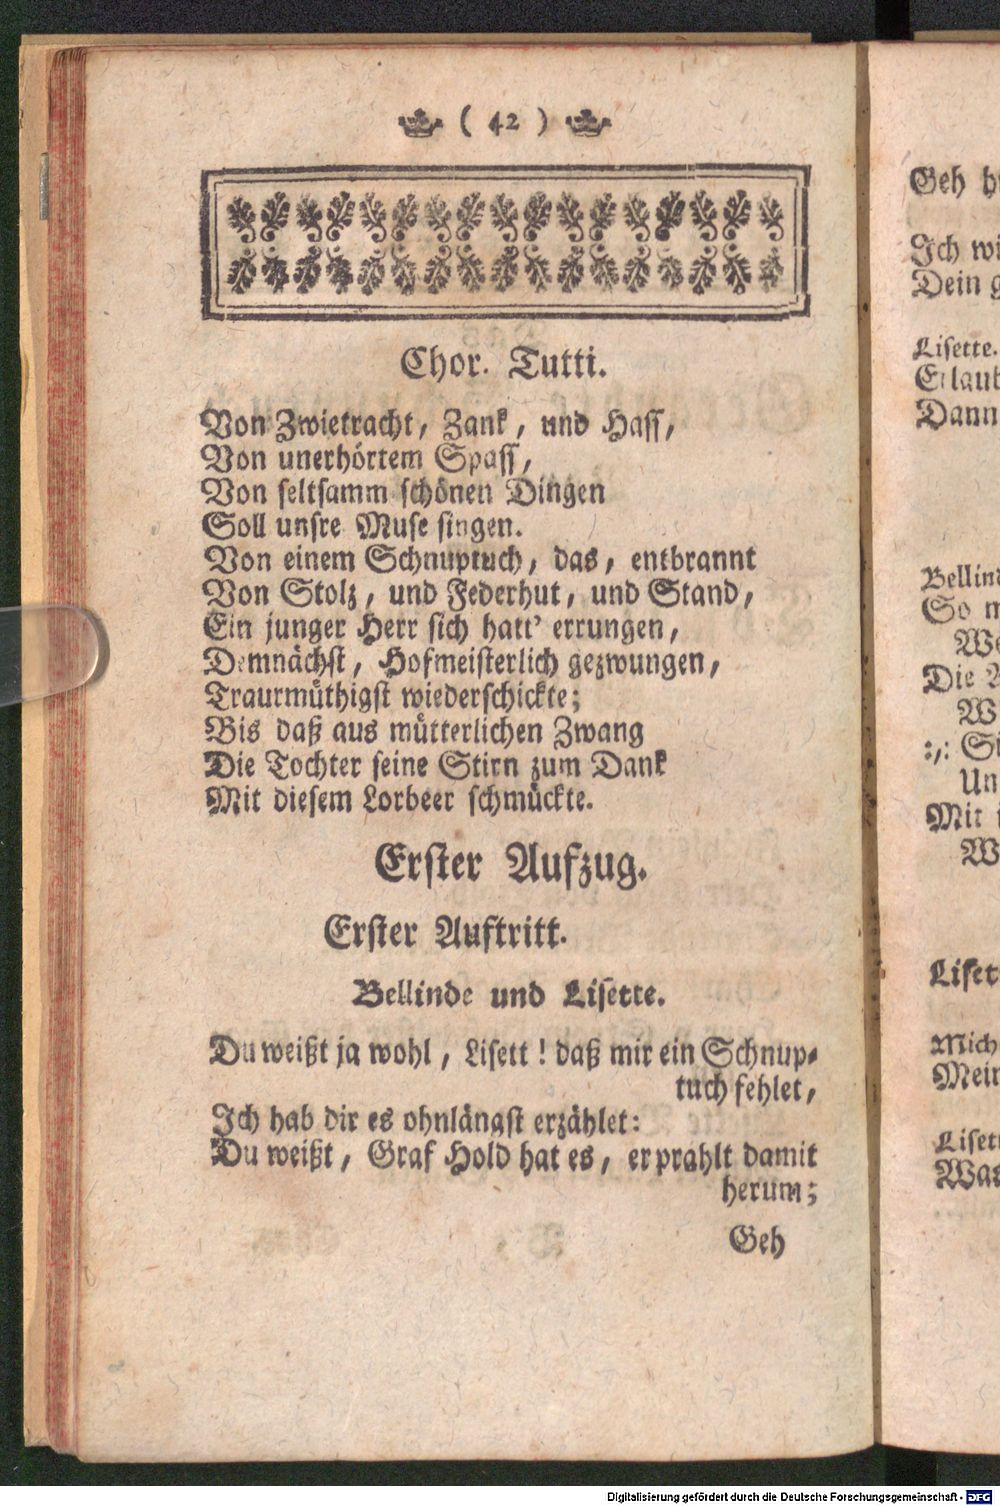 ( 42 )
Chor. Tutti.
Von Zwietracht, Zank, und Hass,
Von unerhörtem Spass,
Von seltsamm schönen Dingen
Soll unsre Muse singen.
Von einem Schnuptuch, das, entbrannt
Von Stolz, und Federhut, und Stand,
Ein junger Herr sich hatt' errungen,
Demnächst, Hofmeisterlich gezwungen,
Traurmüthigst wiederschickte;
Bis daß aus mütterlichen Zwang
Die Tochter seine Stirn zum Dank
Mit diesem Lorbeer schmückte.
Erster Aufzug.
Erster Auftritt.
Bellinde und Lisette.
Du weißt ja wohl, Lisett! daß mir ein Schnup-
tuch fehlet,
Ich hab dir es ohnlängst erzählet:
Du weißt, Graf Hold hat es, er prahlt damit
herum;
Geh
Geh
Ich
Dein
Lisette.
Dann
So
Die
Mit
Mich
Digitalisierung gefördert durch die Deutsche Forschungsgemeinschaft - DFG